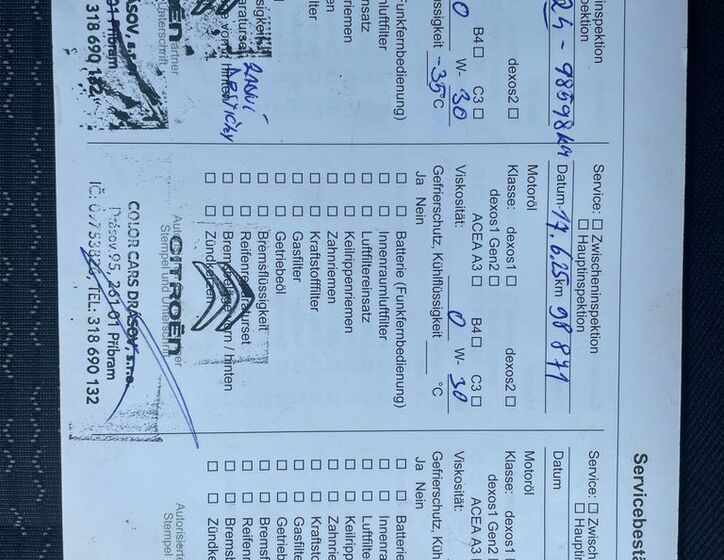 Servicebestä
ninspektion
pektion
24 - 98598km
dexos2 ☐
B4 ☐ C3 ☐
0 W- 30
lüssigkeit -35 °C
Funkfernbedienung)
luftfilter
insatz
riemen
ssigkeit
araturset ZADNÍ
Unterschrift
318 690 132
Service: ☐ Zwischeninspektion
☐ Hauptinspektion
Datum 17.6.25 km 98 871
Motoröl
Klasse: dexos1 ☐ dexos2 ☐
dexos1 Gen2 ☐
ACEA A3 ☐ B4 ☐ C3 ☐
Viskosität: 0 W- 30
Gefrierschutz, Kühlflüssigkeit °C
Ja Nein
☐ ☐ Batterie (Funkfernbedienung)
☐ ☐ Innenraumluftfilter
☐ ☐ Luftfiltereinsatz
☐ ☐ Keilrippenriemen
☐ ☐ Zahnriemen
☐ ☐ Kraftstofffilter
☐ ☐ Gasfilter
☐ ☐ Getriebeöl
☐ ☐ Bremsflüssigkeit
☐ ☐ Reifenreparaturset
☐ ☐ Bremsbeläge vorn / hinten
☐ ☐ Zündkerzen
CITROËN
Stempel und Unterschrift
COLOR CARS DRÁSOV, s.r.o.
Drásov 95, 261 01 Příbram
TEL: 318 690 132
Service: ☐ Zwische
☐ Haupti
Datum
Motoröl
Klasse: dexos1
dexos1 G
ACEA A3
Viskosität:
Gefrierschutz, Kü
Ja Nein
☐ ☐ Batterie
☐ ☐ Innenra
☐ ☐ Luftfilte
☐ ☐ Keilripp
☐ ☐ Zahnrie
☐ ☐ Kraftsto
☐ ☐ Gasfilte
☐ ☐ Getrieb
☐ ☐ Bremsf
☐ ☐ Reifenr
☐ ☐ Bremsb
☐ ☐ Zündke
Autorisierte
Stempel